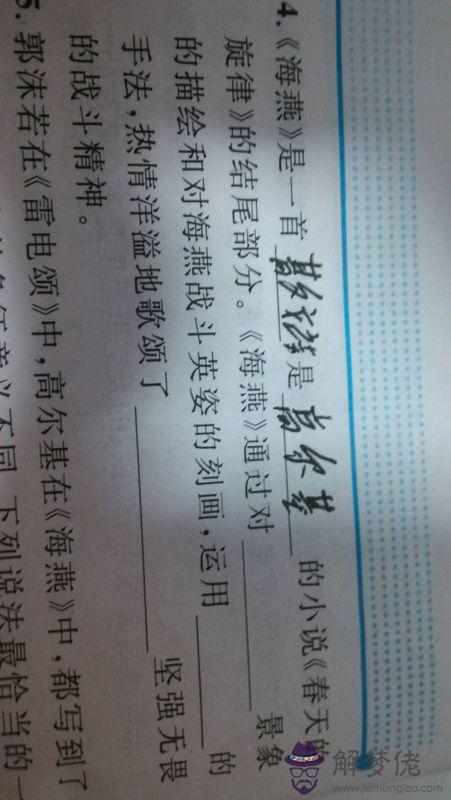 4.《海燕》是一首散文诗是高尔基的小说《春天的
旋律》的结尾部分。《海燕》通过对 景象
的描绘和对海燕战斗英姿的刻画，运用 的
手法，热情洋溢地歌颂了 坚强无畏
的战斗精神。
5.郭沫若在《雷电颂》中，高尔基在《海燕》中，都写到了
征意义不同，下列说法最恰当的一
解梦佬
www.jiemenglao.com